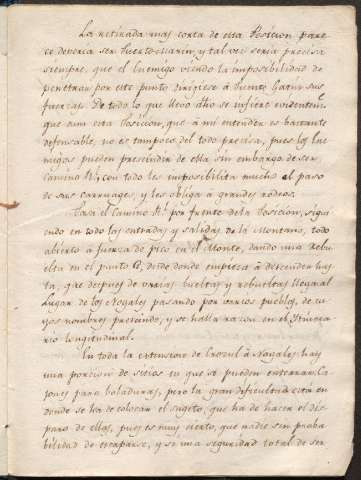 La retirada mas corta de esta Posicion pare
ce deveria ser Puerto-marin, y tal vez seria precisa
siempre, que el Enemigo viendo la imposibilidad de
penetrar por este punto dirijiese â fuerte Gatin sus
fuerzas. De todo lo que llevo dho se infiere evidentem.te
que aun esta Posicion, que á mi entender es bastante
defensable, no es tampoco del todo precisa, pues los Ene
migos pueden prescindir de ella sin embargo de ser
camino R.l; con todo les imposibilita mucho el paso
de sus carruages, y les obliga â grandes rodeos.
Pasa el camino R.l por frente de la Posicion, sigui
endo en todo las entradas y salidas de la Montaña, todo
abierto â fuerza de pico en el Monte, dando una Rebu
elta en el punto desde donde empieza â descender has
ta, que despues de varias bueltas y rebueltas llega al
Lugar de los Nogales pasando por varios pueblos, de cu
yos nombres prescindo, y se halla razon en el Itinera
rio longitudinal.
En toda la extension de Cerezal â Nogales, hay
una porcion de sitios en que se pueden enterrar Ca
jones para boladuras, pero la gran dificultad está en
donde se ha de colocar el sugeto, que ha de hacer el dis
paro de ellas, pues es muy cierto, que nadie sin proba
bilidad de escaparse, y sí una seguridad total de ser